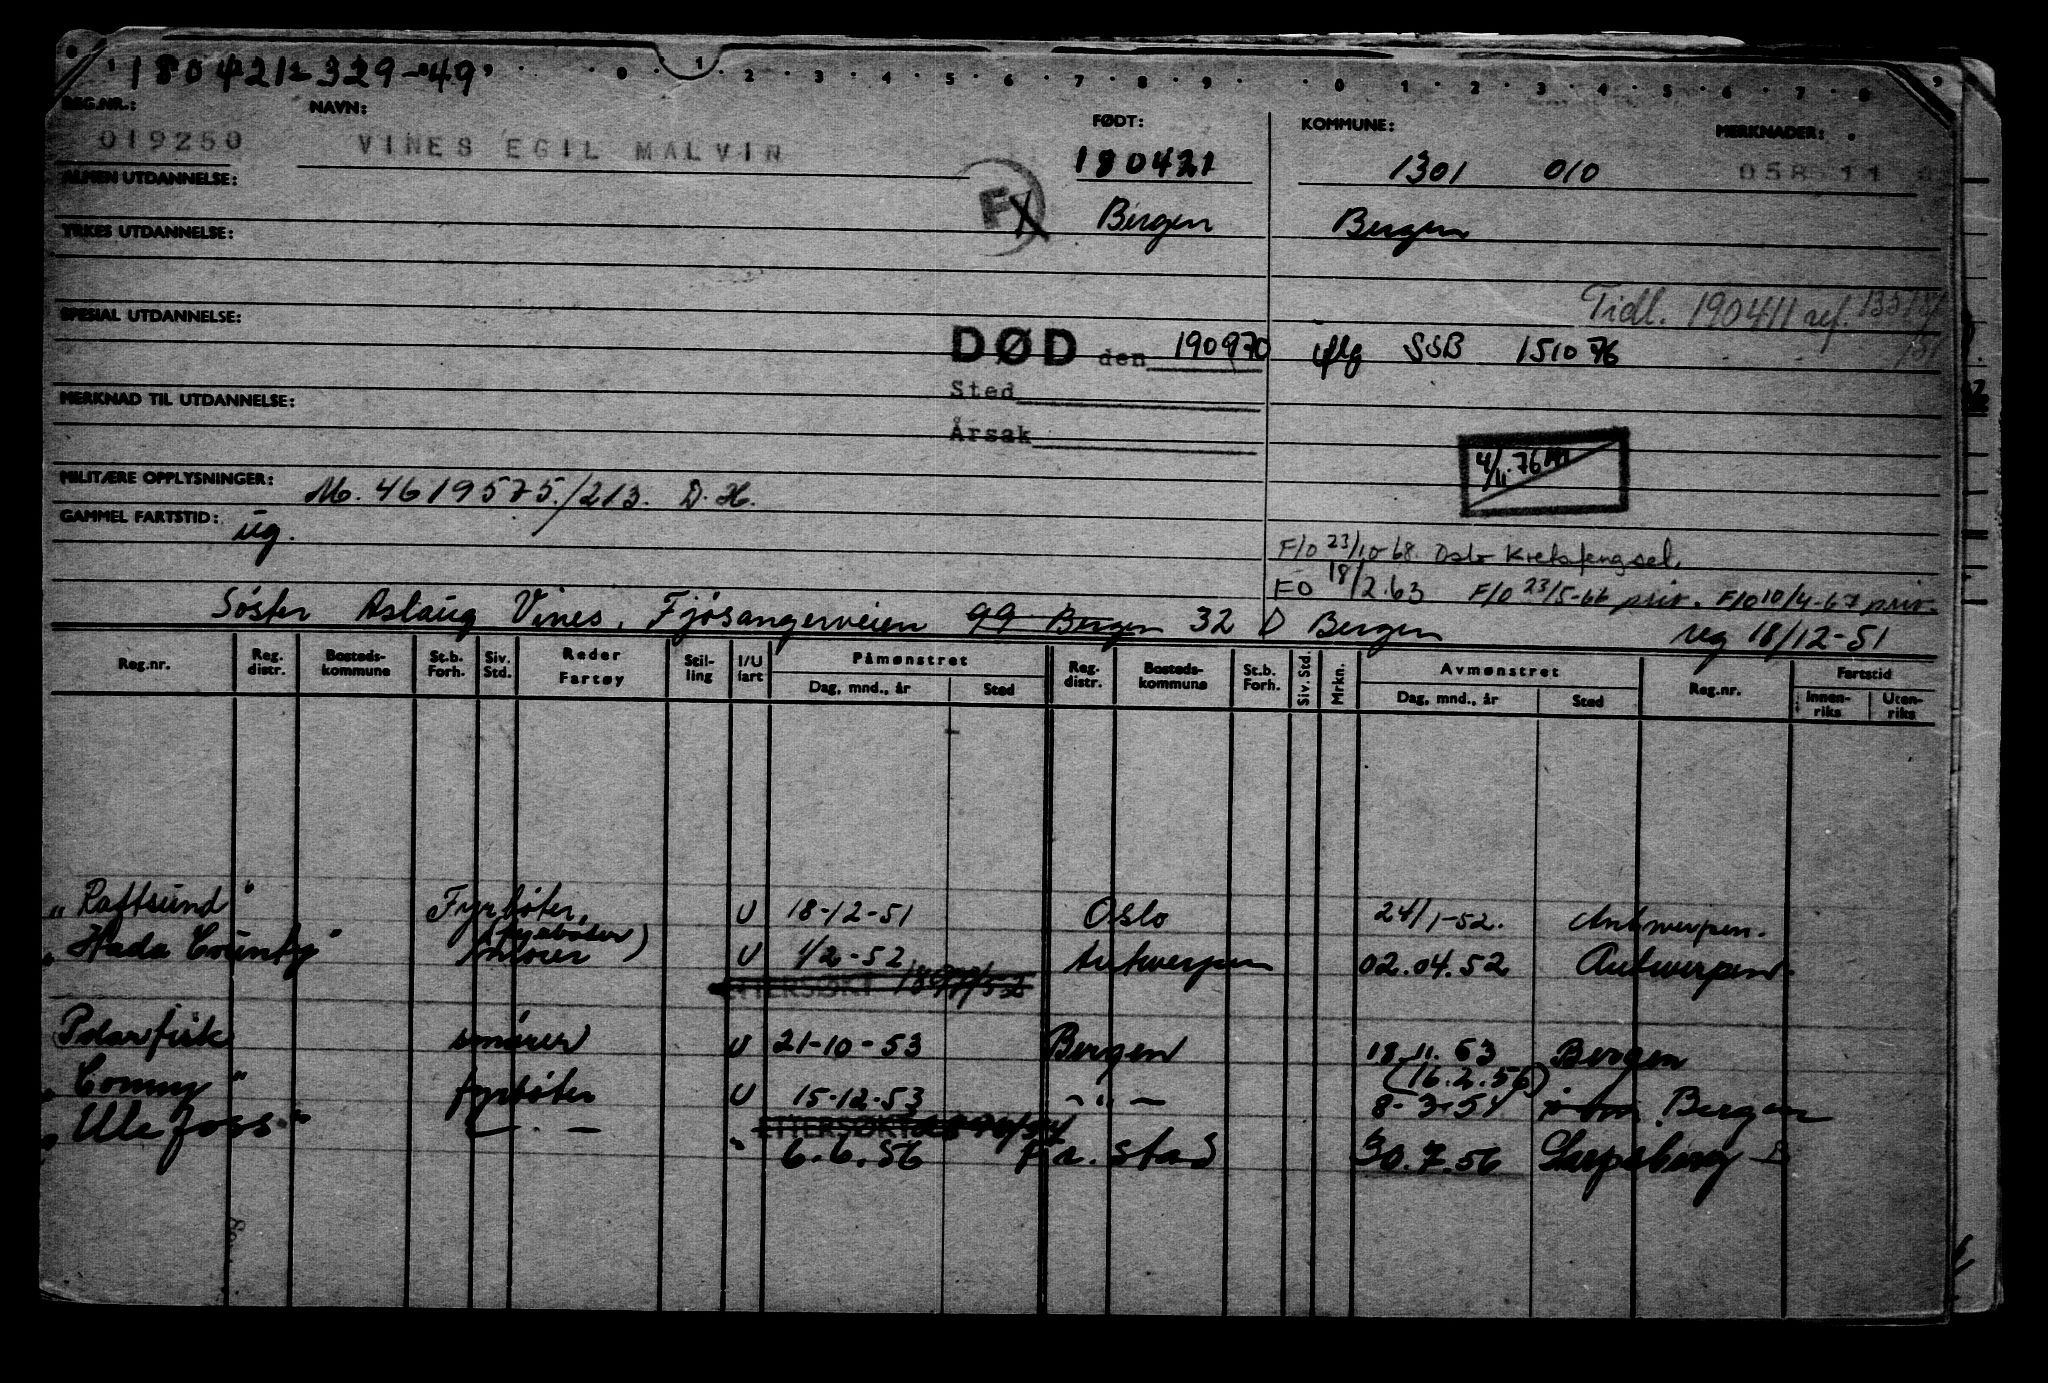 180421-329-49
0 1 2 3 4 5 6 7 8 9 0 1 2 3 4 5 6 7 8 9
REG.NR.: NAVN: FØDT: KOMMUNE: MERKNADER:
019250 VINES EGIL MALVIN 180421 1301 010 058 11
ALMEN UTDANNELSE: F Bergen Bergen
YRKES UTDANNELSE:
Tidl. 190411 ref.
SPESIAL UTDANNELSE:
DØD den 190970 iflg SSB 151076
Sted
MERKNAD TIL UTDANNELSE:
Årsak
4/11.76
MILITÆRE OPPLYSNINGER: M. 4619575./213. D.H.
GAMMEL FARTSTID: ug.
F/O 23/10-68. Oslo Kretsfengsel.
FO 18/2.63 F/O 23/5-66 priv. F/O 10/4-67 priv.
Søster Aslaug Vines, Fjøsangerveien 99 Bergen 32 D Bergen reg 18/12-51
Reg.nr. Reg. distr. Bosteds-kommune St.b. Forh. Siv. Std. Reder Fartøy Stil-ling I/U fart Påmønstret Dag, mnd., år Sted Reg. distr. Bosteds-kommune St.b. Forh. Siv. Std. Mrkn. Avmønstret Dag, mnd., år Sted Reg.nr. Fartstid Innen-riks Uten-riks
"Raftsund" Fyrbøter, U 18-12-51 Oslo 24/1-52. Antwerpen.
(fyrbøter)
"Hada County" smører U 1/2-52 Antwerpen 02.04.52 Antwerpen.
ETTERSØKT
Polarfisk smører U 21-10-53 Bergen 18.11.53 Bergen
(16.2.56)
"Conny" fyrbøter U 15-12-53 - " - 8-3-54 Bergen
ETTERSØKT
"Ulefoss" - " - " 6.6.56 Fr.stad 30.7.56 Sarpsborg